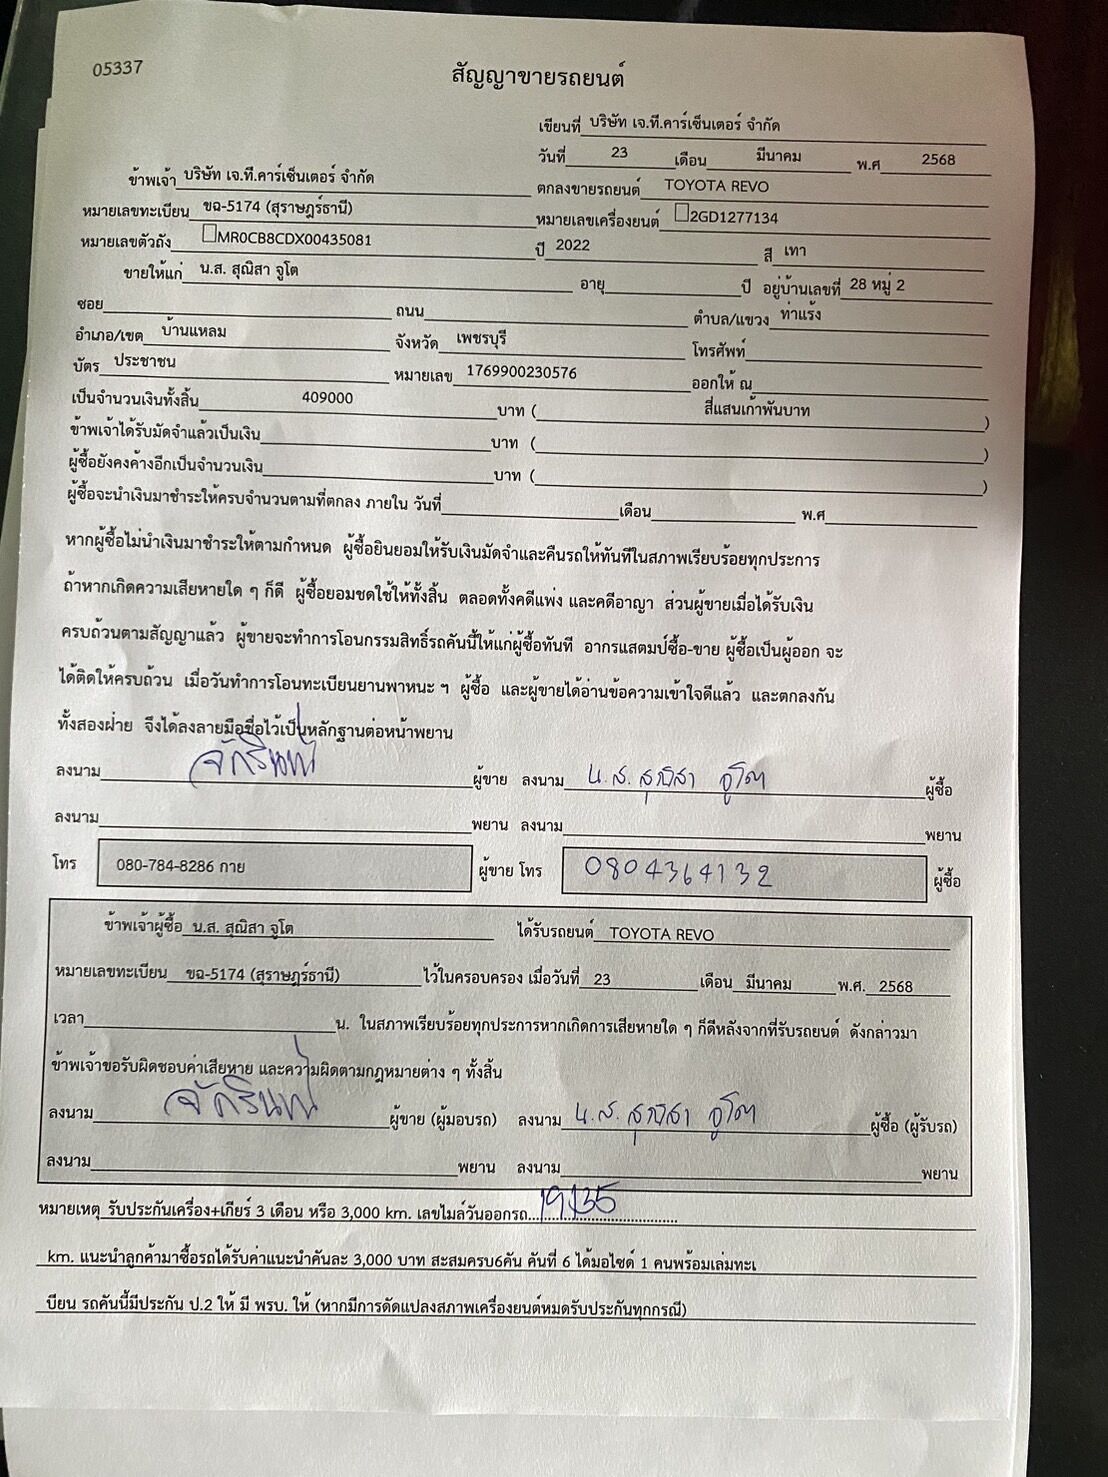 05337
สัญญาขายรถยนต์
เขียนที่ บริษัท เจ.ที.คาร์เซ็นเตอร์ จำกัด
วันที่ 23 เดือน มีนาคม พ.ศ 2568
ข้าพเจ้า บริษัท เจ.ที.คาร์เซ็นเตอร์ จำกัด ตกลงขายรถยนต์ TOYOTA REVO
หมายเลขทะเบียน ขฉ-5174 (สุราษฎร์ธานี) หมายเลขเครื่องยนต์ 2GD1277134
หมายเลขตัวถัง MR0CB8CDX00435081 ปี 2022 สี เทา
ขายให้แก่ น.ส. สุณิสา จูโต อายุ ปี อยู่บ้านเลขที่ 28 หมู่ 2
ซอย ถนน ตำบล/แขวง ท่าแร้ง
อำเภอ/เขต บ้านแหลม จังหวัด เพชรบุรี โทรศัพท์
บัตร ประชาชน หมายเลข 1769900230576 ออกให้ ณ
เป็นจำนวนเงินทั้งสิ้น 409000 บาท ( สี่แสนเก้าพันบาท )
ข้าพเจ้าได้รับมัดจำแล้วเป็นเงิน บาท ( )
ผู้ซื้อยังคงค้างอีกเป็นจำนวนเงิน บาท ( )
ผู้ซื้อจะนำเงินมาชำระให้ครบจำนวนตามที่ตกลง ภายใน วันที่ เดือน พ.ศ
หากผู้ซื้อไม่นำเงินมาชำระให้ตามกำหนด ผู้ซื้อยินยอมให้รับเงินมัดจำและคืนรถให้ทันทีในสภาพเรียบร้อยทุกประการ
ถ้าหากเกิดความเสียหายใด ๆ ก็ดี ผู้ซื้อยอมชดใช้ให้ทั้งสิ้น ตลอดทั้งคดีแพ่ง และคดีอาญา ส่วนผู้ขายเมื่อได้รับเงิน
ครบถ้วนตามสัญญาแล้ว ผู้ขายจะทำการโอนกรรมสิทธิ์รถคันนี้ให้แก่ผู้ซื้อทันที อากรแสตมป์ซื้อ-ขาย ผู้ซื้อเป็นผู้ออก จะ
ได้ติดให้ครบถ้วน เมื่อวันทำการโอนทะเบียนยานพาหนะ ฯ ผู้ซื้อ และผู้ขายได้อ่านข้อความเข้าใจดีแล้ว และตกลงกัน
ทั้งสองฝ่าย จึงได้ลงลายมือชื่อไว้เป็นหลักฐานต่อหน้าพยาน
ลงนาม ผู้ขาย ลงนาม น.ส. สุณิสา จูโต ผู้ซื้อ
ลงนาม พยาน ลงนาม พยาน
โทร 080-784-8286 กาย ผู้ขาย โทร 0804364132 ผู้ซื้อ
ข้าพเจ้าผู้ซื้อ น.ส. สุณิสา จูโต ได้รับรถยนต์ TOYOTA REVO
หมายเลขทะเบียน ขฉ-5174 (สุราษฎร์ธานี) ไว้ในครอบครอง เมื่อวันที่ 23 เดือน มีนาคม พ.ศ. 2568
เวลา น. ในสภาพเรียบร้อยทุกประการหากเกิดการเสียหายใด ๆ ก็ดีหลังจากที่รับรถยนต์ ดังกล่าวมา
ข้าพเจ้าขอรับผิดชอบค่าเสียหาย และความผิดตามกฎหมายต่าง ๆ ทั้งสิ้น
ลงนาม ผู้ขาย (ผู้มอบรถ) ลงนาม น.ส. สุณิสา จูโต ผู้ซื้อ (ผู้รับรถ)
ลงนาม พยาน ลงนาม พยาน
หมายเหตุ รับประกันเครื่อง+เกียร์ 3 เดือน หรือ 3,000 km. เลขไมล์วันออกรถ
km. แนะนำลูกค้ามาซื้อรถได้รับค่าแนะนำคันละ 3,000 บาท สะสมครบ6คัน คันที่ 6 ได้มอไซด์ 1 คนพร้อมเล่มทะเ
บียน รถคันนี้มีประกัน ป.2 ให้ มี พรบ. ให้ (หากมีการดัดแปลงสภาพเครื่องยนต์หมดรับประกันทุกกรณี)